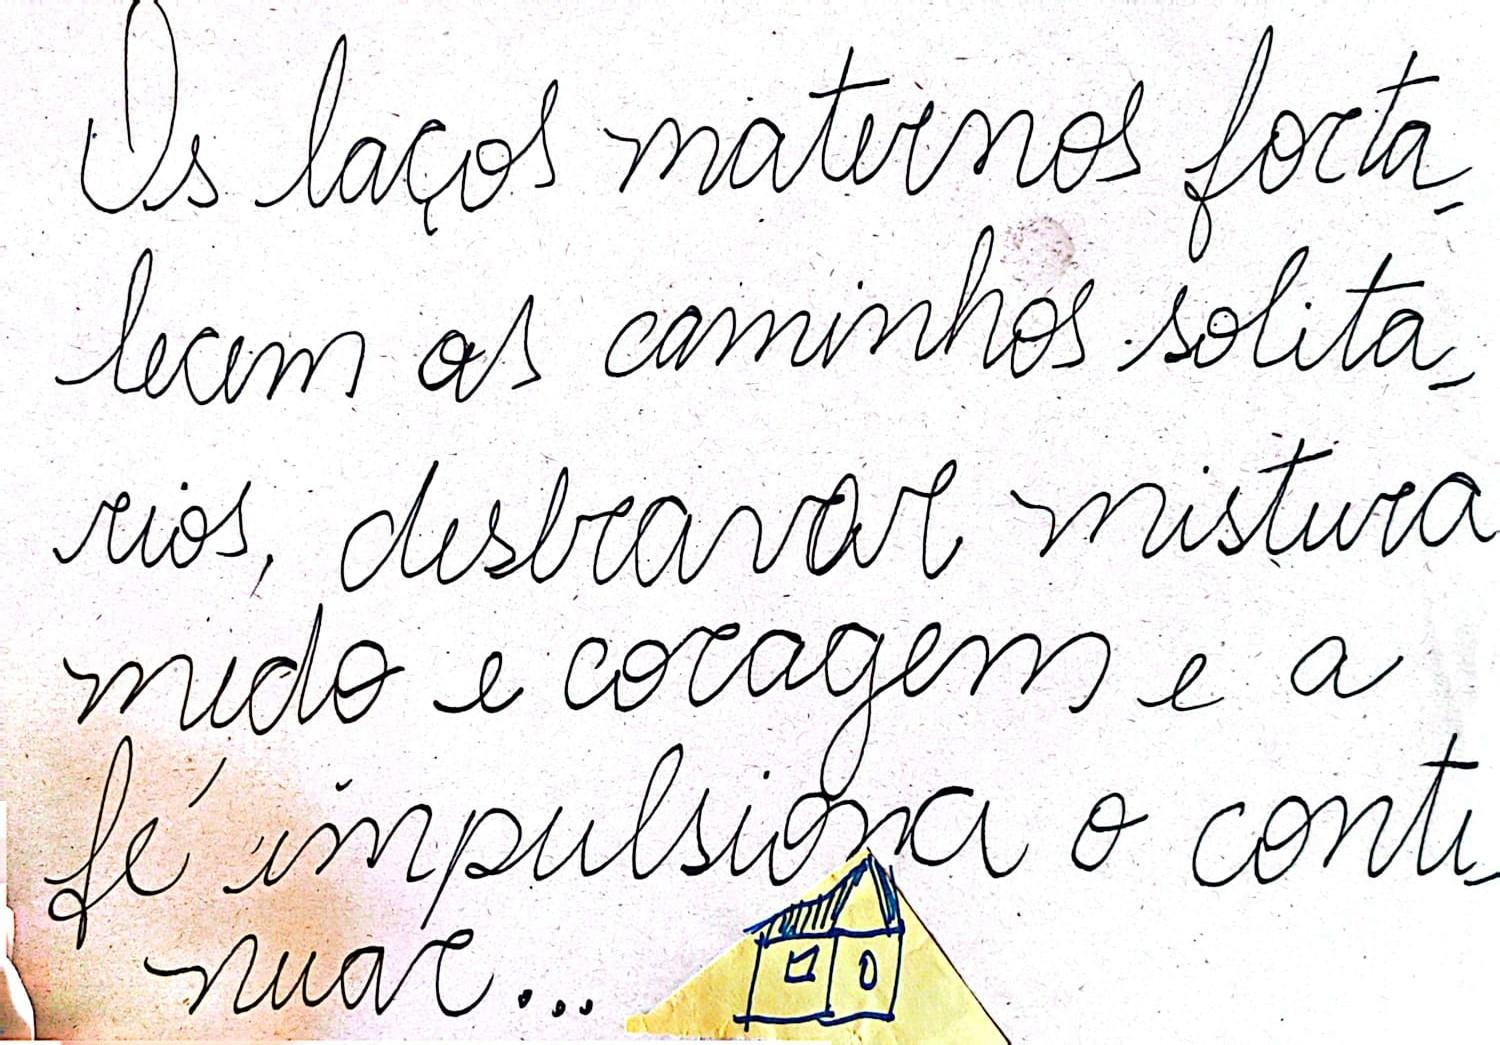 Os laços maternos forta-
lecem os caminhos solita-
rios, desbravar mistura
medo e coragem e a
fé impulsiona o conti-
nuar...